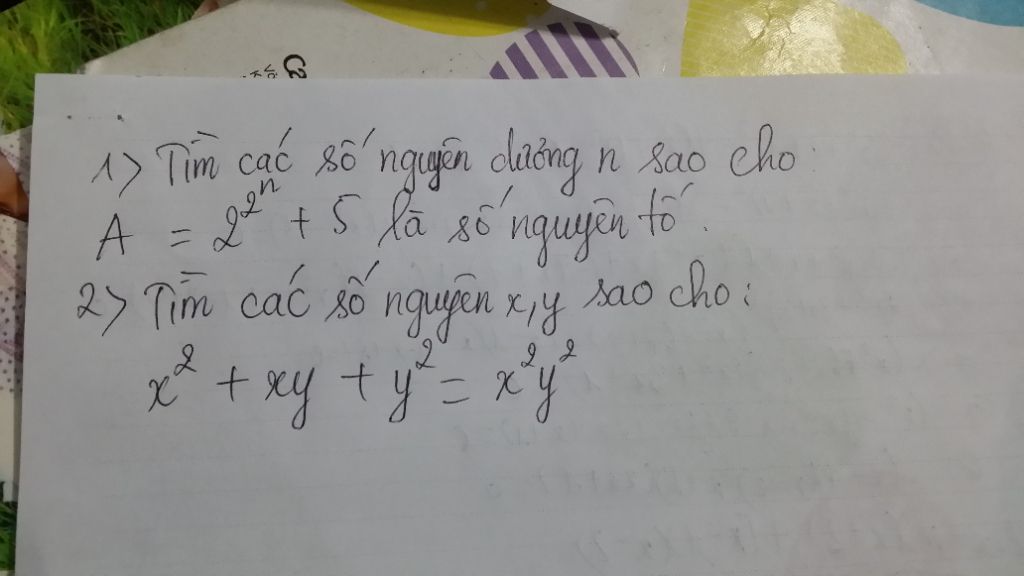 1> Tìm các số nguyên dương n sao cho:
A = 2^{2^n} + 5 là số nguyên tố.
2> Tìm các số nguyên x, y sao cho:
x² + xy + y² = x²y²